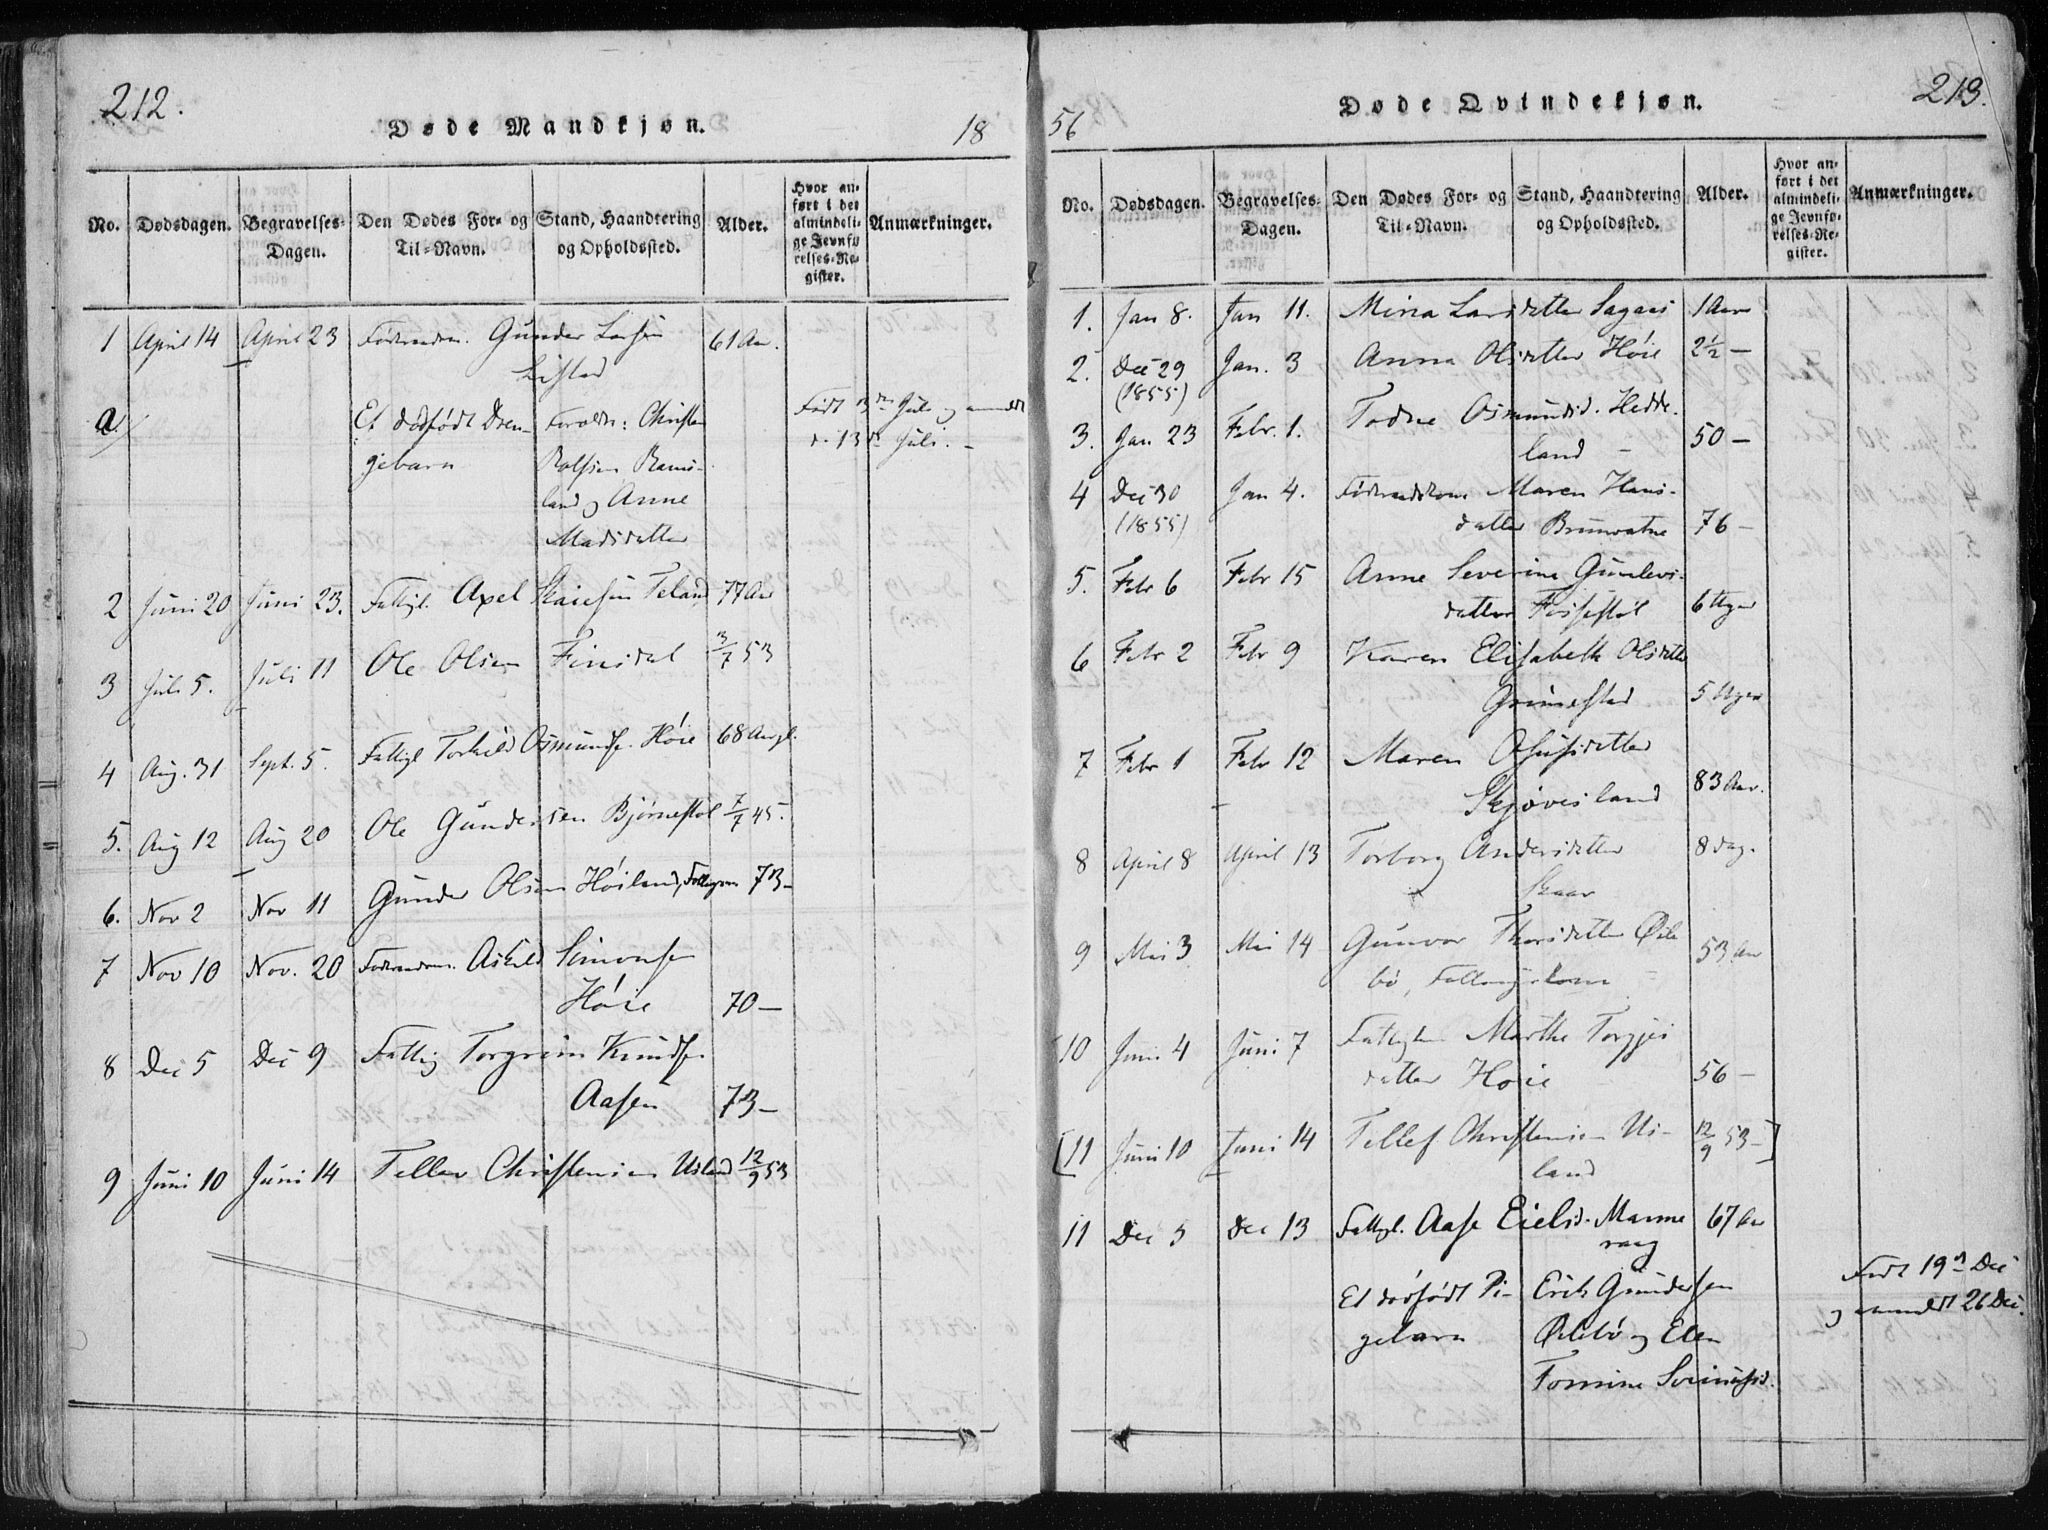 212.
Døde Mandkjøn.
18
No. Dødsdagen. Begravelses-Dagen. Den Dødes For- og Til-Navn. Stand, Haandtering og Opholdssted. Alder. Hvor anført i det almindelige Jevnførelses-Register. Anmærkninger.
1 April 14 April 23 Føderaadsm. Gunder Larsen 61 Aar.
Listad
a/ Et dødfødt Dren- Forældre: Christen Født 3die Juli og anmeldt
gebarn Rolfsen Rams- d. 13de Juli.
land og Anne
Madsdatter
2 Juni 20 Juni 23. Fattigl. Axel Teland 77 Aar
3 Juli 5. Juli 11 Ole Olsen Finsdal 3/7 53
4 Aug. 31 Sept. 5. Fattigl Torkild Osmunds. Høie 68 Aar gl.
5. Aug 12 Aug 20 Ole Gundersen Bjørnestøl 7/7 45.
6. Nov 2 Nov 11 Gunder Olsen Høiland, 73 –
7 Nov 10 Nov. 20 Føderaadsm. Askild Simonsen
Høie 70 –
8 Dec 5 Dec 9 Fattig Torgrim Knuds.
Aasen 73 –
9 Juni 10 Juni 14 Tellev Christensen Usland 12/9 53
56
Døde Qvindekjøn.
213.
No. Dødsdagen. Begravelses-Dagen. Den Dødes For- og Til-Navn. Stand, Haandtering og Opholdssted. Alder. Hvor anført i det almindelige Jevnførelses-Register. Anmærkninger.
1. Jan 8. Jan 11. Mina Larsdatter Sagaas 1 Aar
2. Dec 29 Jan. 3 Anna Olsdatter Høie 2½ –
(1855)
3. Jan 23 Febr. 1. Todne Osmundsd. Hedde-
land 50 –
4 Dec 30 Jan 4. Føderaadskone Maren Hans-
(1855) datter Brunvatne 76 –
5. Febr 6 Febr 15 Anne Severine Gunlevs-
datter Fossestøl 6 Uger
6 Febr 2 Febr 9 Karen Elisabeth Olsdatter
Grimestad 5 Uger
7 Febr 1 Febr 12 Maren
Skjøvesland 83 Aar.
8 April 8 April 13 Torborg Andersdatter 8 Dag.
Skaar
9 Mai 3 Mai 14 Gunvor Thorsdatter Øile
bø, 53 Aar
10 Juni 4 Juni 7 Marthe Torgjus
datter Høie 56 –
[11 Juni 10 Juni 14 Tellef Christensen Us- 12/9 53 –]
land
11 Dec 5 Dec 13 Fattigl. Aase Eielsd. Manne 67 Aar
raag
Et dødfødt Pi- Erik Gundersen Født 19de Dec
gebarn Øilebø og Elen og anmeldt 26 Dec.
Tomine